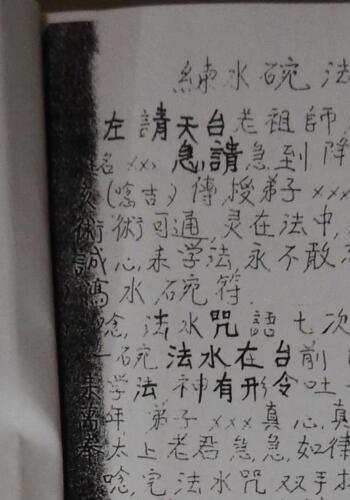 練水碗法
左請天台老祖師
名××× 急請急到降
(唸吉) 傳授弟子×××
術術可通 灵在法中
誠心來学法永不敢
水碗符
唸法水咒語七次
一碗法水在台前
来学法神有形令吐
萬年弟子×××真心真
奉太上老君急急如律
唸完法水咒双手